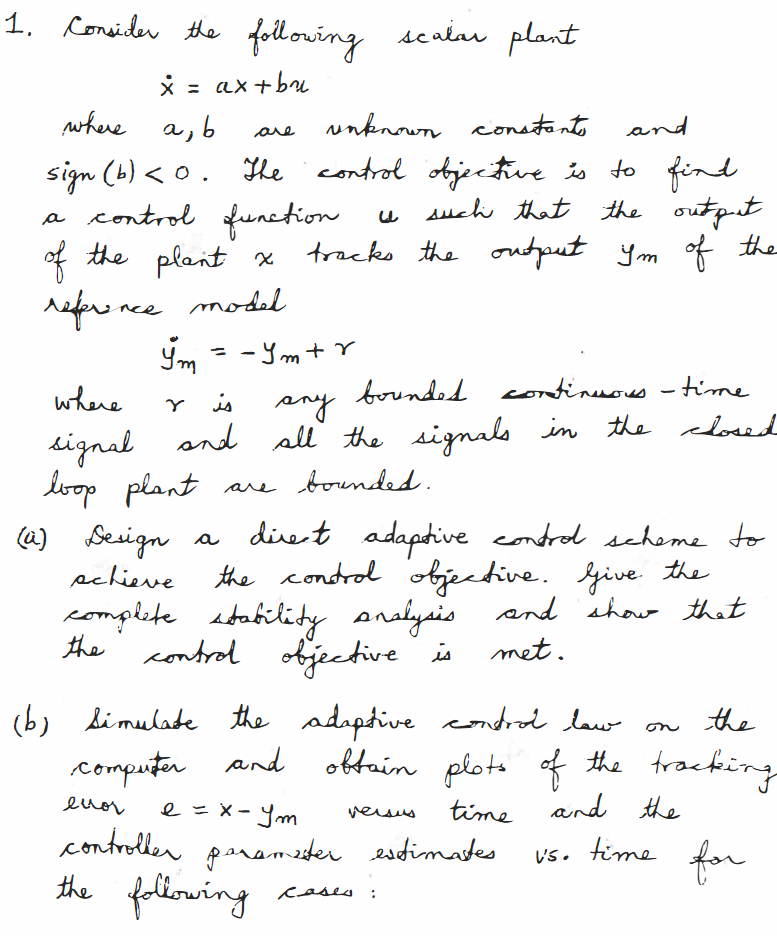 1. Consider the following scalar plant
ẋ = ax + bu
where a, b are unknown constants and
sign (b) < 0. The control objective is to find
a control function u such that the output
of the plant x tracks the output ym of the
reference model
ẏm = - ym + r
where r is any bounded continuous-time
signal and all the signals in the closed
loop plant are bounded.
(a) Design a direct adaptive control scheme to
achieve the control objective. Give the
complete stability analysis and show that
the control objective is met.
(b) Simulate the adaptive control law on the
computer and obtain plots of the tracking
error e = x - ym versus time and the
controller parameter estimates vs. time for
the following cases :